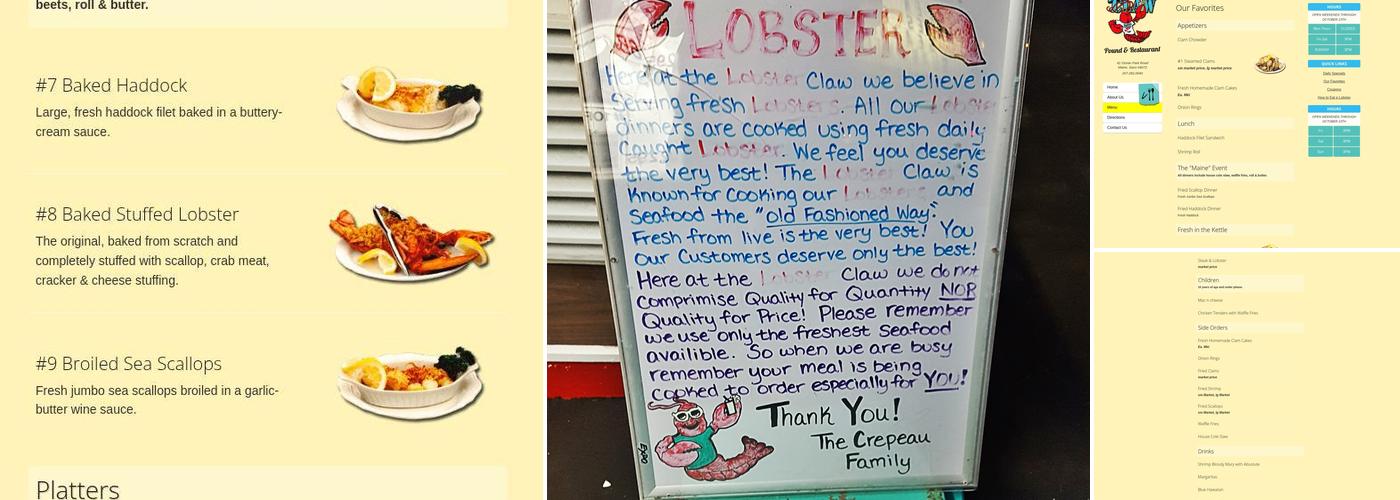 beets, roll & butter.
#7 Baked Haddock
Large, fresh haddock filet baked in a buttery-
cream sauce.
#8 Baked Stuffed Lobster
The original, baked from scratch and
completely stuffed with scallop, crab meat,
cracker & cheese stuffing.
#9 Broiled Sea Scallops
Fresh jumbo sea scallops broiled in a garlic-
butter wine sauce.
Platters
LOBSTER
Here at the Lobster Claw we believe in
Serving fresh Lobsters. All our Lobster
dinners are cooked using fresh daily
Caught Lobster. We feel you deserve
the very best! The Lobster Claw is
Known for Cooking our Lobsters and
Seafood the "old Fashioned Way".
Fresh from live is the very best! You
our Customers deserve only the best!
Here at the Lobster Claw we do not
Comprimise Quality for Quantity NOR
Quality for Price! Please remember
we use only the freshest Seafood
availible. So when we are busy
remember your meal is being
cooked to order especially for YOU!
Thank You!
The Crepeau
Family
Pound & Restaurant
Home
About Us
Menu
Directions
Contact Us
Our Favorites
Appetizers
Clam Chowder
#1 Steamed Clams
sm market price, lg market price
Fresh Homemade Clam Cakes
Onion Rings
Lunch
Haddock Filet Sandwich
Shrimp Roll
The "Maine" Event
All dinners include house cole slaw, waffle fries, roll & butter.
Fried Scallop Dinner
Fresh Jumbo Sea Scallops
Fried Haddock Dinner
Fresh Haddock
Fresh in the Kettle
HOURS
OPEN WEEKENDS THROUGH
QUICK LINKS
Daily Specials
Our Favorites
Coupons
How to Eat a Lobster
HOURS
OPEN WEEKENDS THROUGH
Steak & Lobster
market price
Children
Mac n cheese
Chicken Tenders with Waffle Fries
Side Orders
Fresh Homemade Clam Cakes
Onion Rings
Fried Clams
market price
Fried Shrimp
sm Market, lg Market
Fried Scallops
sm Market, lg Market
Waffle Fries
House Cole Slaw
Drinks
Shrimp Bloody Mary with Absolute
Margaritas
Blue Hawaiian